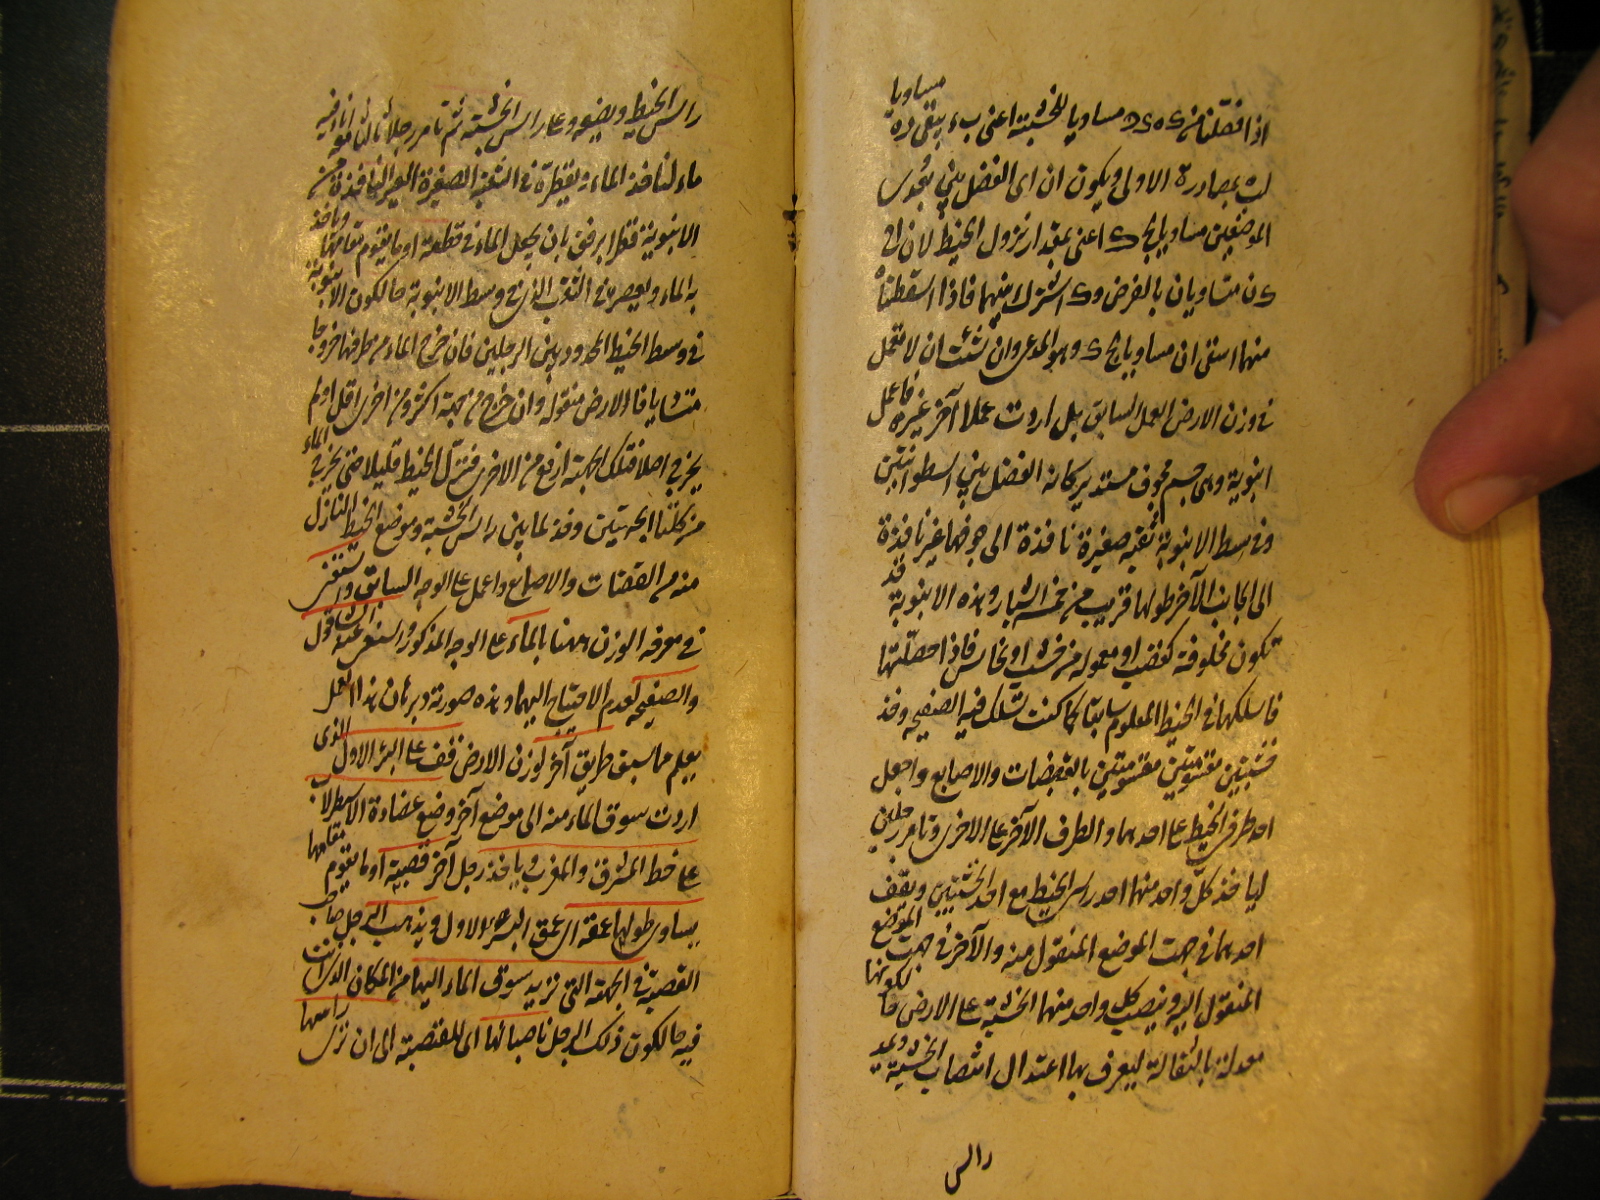 اذا فصلنا من ه د مساويا للخشبة اعنى ب ء يبقى ده مساويا
بمصادرة الاولى ويكون ان اى الفضل بين
الموضعين مساويا اعنى بمقدار نزول الخيط لان
متساويان بالفرض و مشترك بينهما فاذا اسقطناه
منهما استقى ان مساويا وهو المدعى وان شئت ان لا تعمل
فى وزن الارض العمل السابق بل اردت عملا آخر غيره فاعمل
انبوبة وهى جسم مجوف مستدير كانه الفضل بين اسطوانتين
وفى وسط الانبوبة ثقبة صغيرة نافذة الى جوفها غير نافذة
الى الجانب الآخر طولها قريب من خمسة اشبار وهذه الانبوبة قد
تكون مخلوقة كقصب او معمولة من خشب او نحاس فاذا حصلتها
فاسلكها فى الخيط المعلوم سابقا كما كنت تسلك فيه الصفيحة وخذ
خشبتين مقسومتين بالقبضات والاصابع واجعل
احد طرفى الخيط على احدهما والطرف الآخر على الاخرى وتامر رجلين
لياخذ كل واحد منهما احد راسى الخيط مع احد الخشبتين ويقف
احدهما فى جهت الموضع المنقول منه والآخر فى جهت الموضع
المنقول اليه وينصب كل واحد منهما الخشبة على الارض حالكونها
معدلة بالثقالة ليعرف بها اعتدال انتصاب الخشبة
راس
راس الخيط ويضعه على راس الخشبة ثم تامر رجلا ثالثا
ماء لنا فخذ الماء نقطره فى الثقبة الصغيرة الغير النافذة من
الانبوبة قطرا برفق بان يجعل الماء فى قطنة او ما يقوم مقامها وياخذ
به الماء ويعصره فى الثقب الذى فى وسط الانبوبة حالكون الانبوبة
فى وسط الخيط الممدود بين الرجلين فان خرج الماء من طرفيها خروجا
متشابها فالارض متقولة وان خرج من جهة اكثر ومن اخرى اقل او لم
يخرج اصلا فتلك الجهة ارفع من الاخرى فتنزل الخيط قليلا حتى يخرج الماء
من كلتا الجهتين وخذ لما بين راس الخشبة وموضع الخيط النازل
منه من القبضات والاصابع واعمل على الوجه السابق واستغنى
فى معرفة الوزن ههنا بالماء على الوجه المذكور واستغنى عن الشاقول
والصفيحة لعدم الاحتياج اليهما وهذه صورته وبرهان هذا العمل
يعلم مما سبق طريق آخر لوزن الارض قف على البئر الاول الذى
اردت سوق الماء منه الى موضع آخر وضع عضادة الاسطرلاب
على خط المشرق والمغرب وياخذ رجل آخر قصبة او ما يقوم مقامها
يساوى طولها عمقه اى عمق البئر الاول ويذهب الرجل صاحب
القصبة فى الجهة التى تريد سوق الماء اليها من المكان الذى انت
فيه حالكون ذلك الرجل ناصبا لها اى للقصبة الى ان ترى راسها